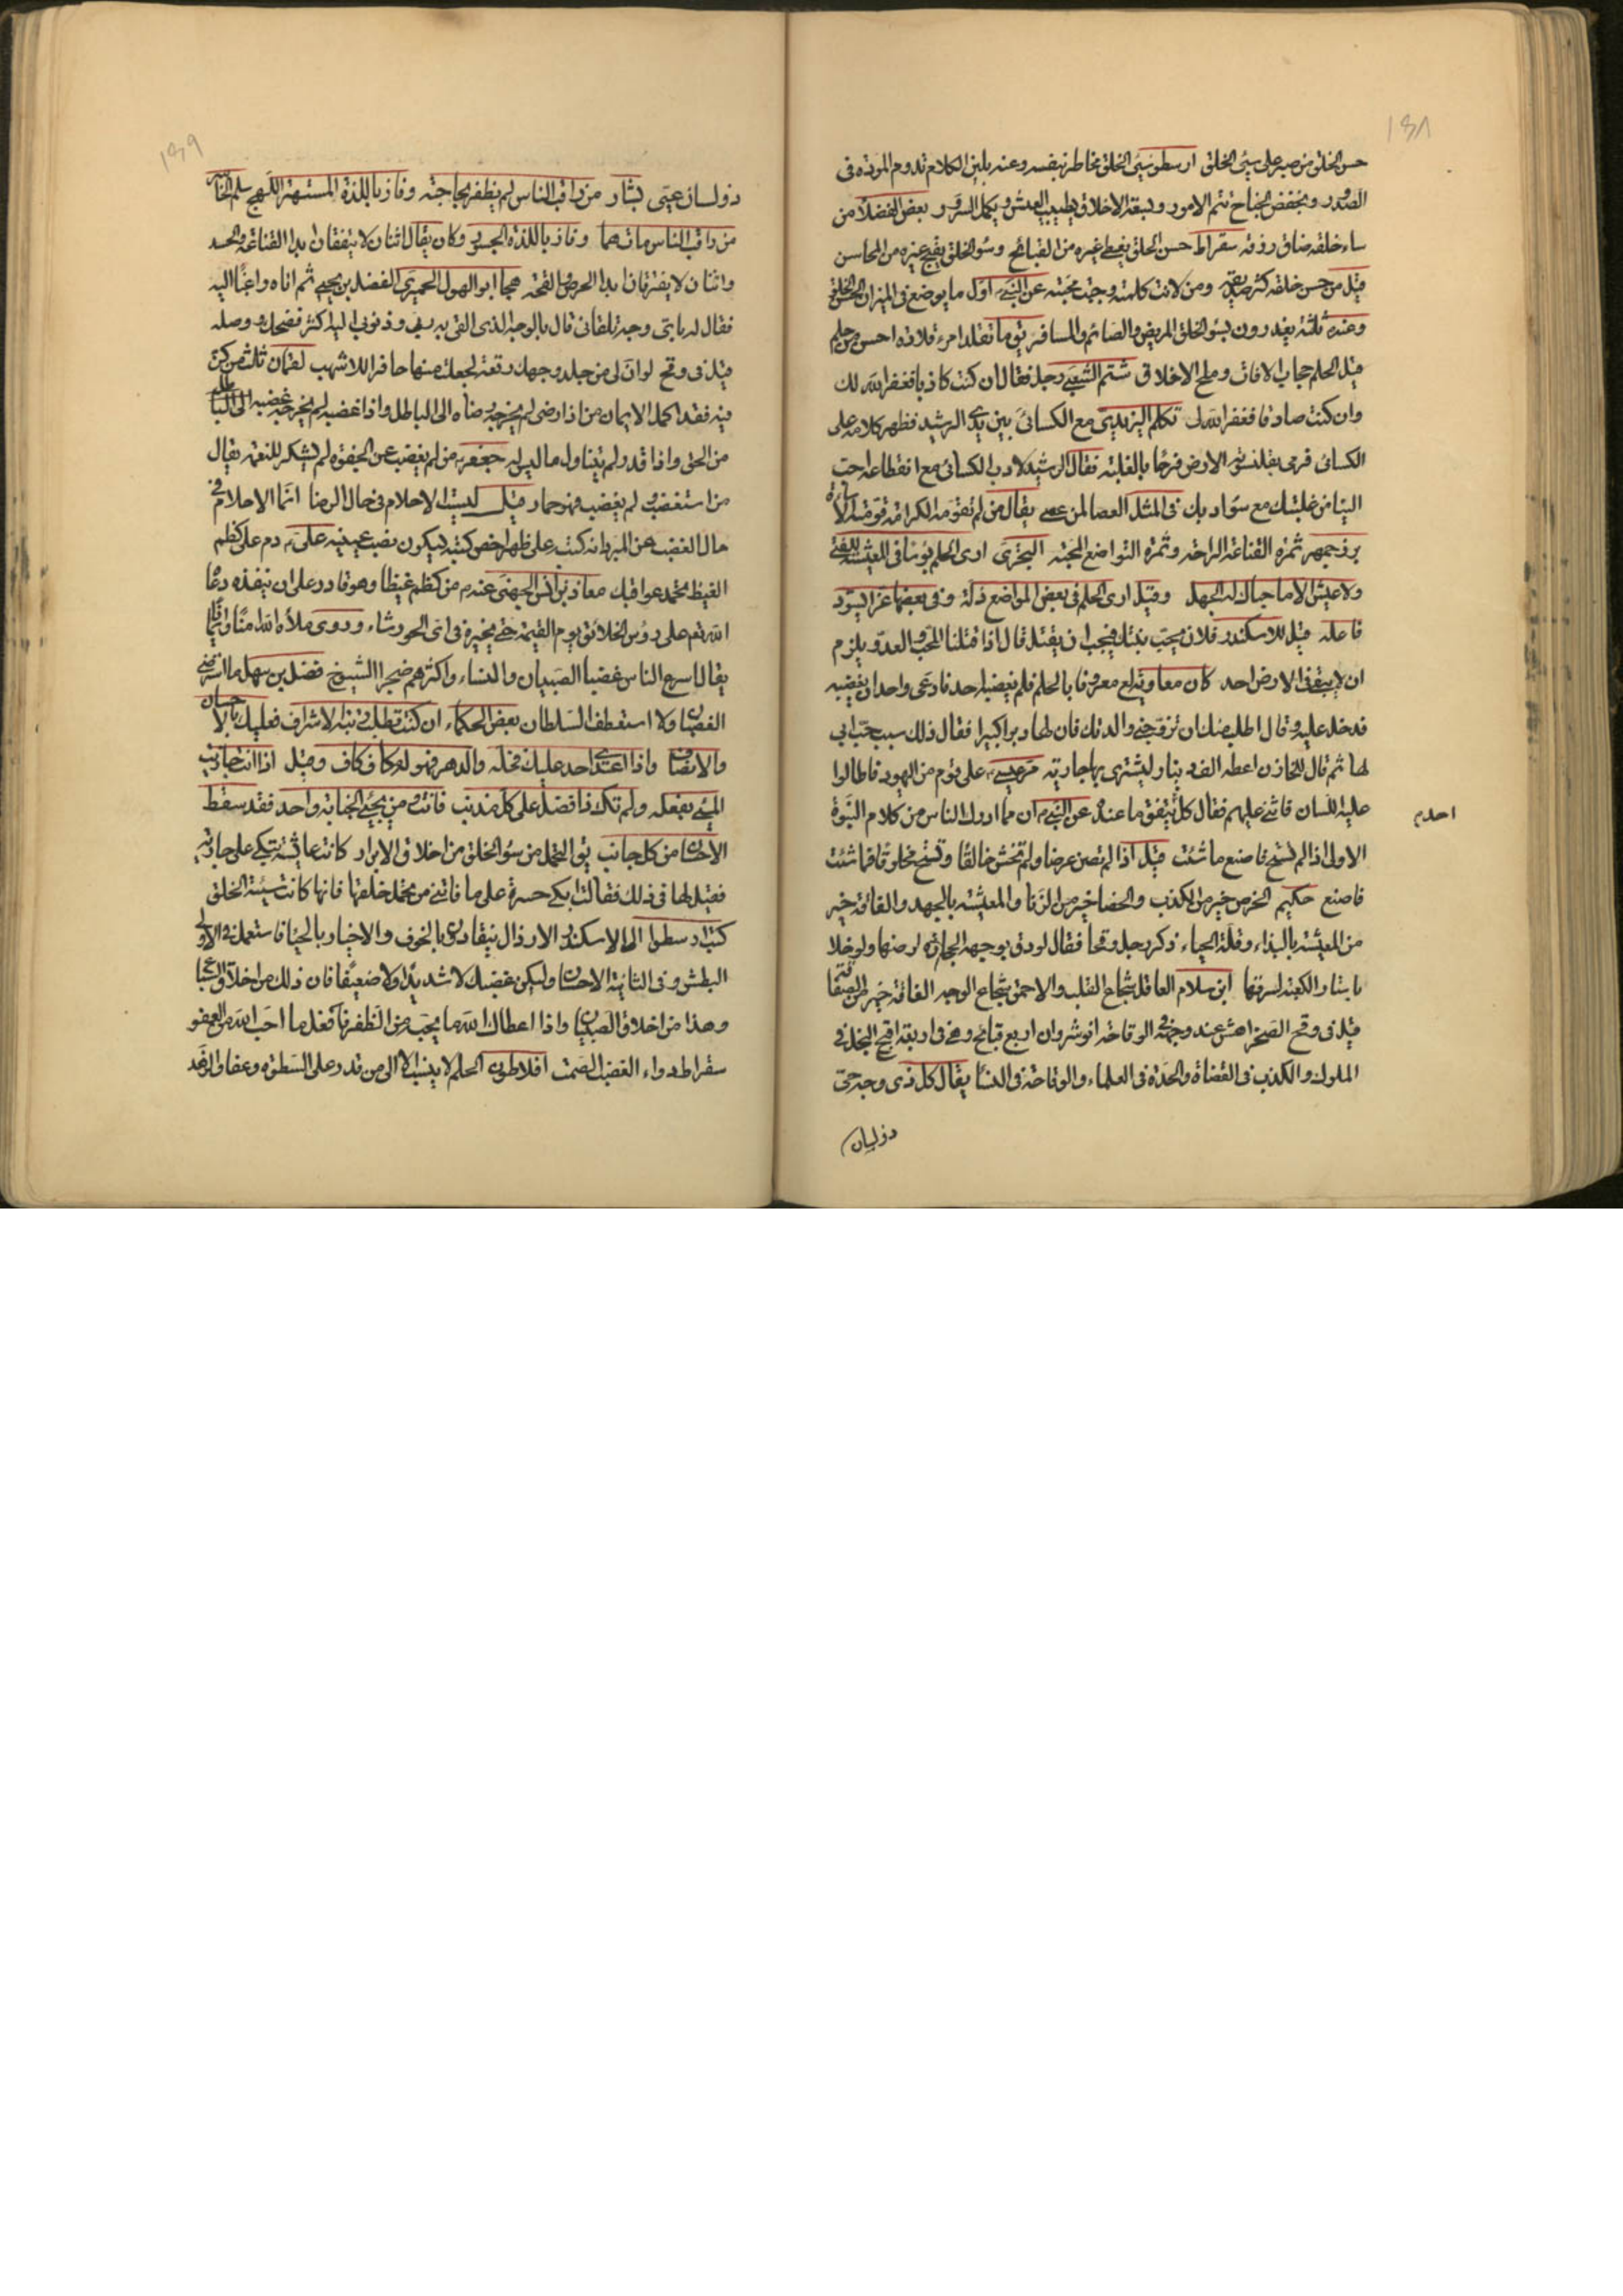 ١٣٨
حسن الخلق من صبر على سيئ الخلق ارسطو سيئ الخلق مخاطر بنفسه وعنه بلين الكلام تدوم المودة فى
الصدور وبخفض الجناح تتم الامور وبسعة الاخلاق يطيب العيش ويكمل السرور بعض الفضلاء من
ساء خلقه ضاق رزقه سقراط حسن الخلق يغطى غيره من القبائح وسوء الخلق يقبح غيره من المحاسن
قيل من حسن خلقه كثر صديقه ومن لانت كلمته وجبت محبته عن النبى اول ما يوضع فى الميزان الخلق الحسن
وعنه ثلثة يعذرون بسوء الخلق المريض والصائم والمسافر يق ما تقلد امرء قلادة احسن من حلم
قيل الحلم حجاب الافات وملح الاخلاق شتم الشعبى رجل فقال ان كنت كاذبا فغفر الله لك
وان كنت صادقا فغفر الله لى تكلم اليزيدى مع الكسائى بين يدى الرشيد فظهر كلامه على
الكسائى فرمى بقلنسوته الارض فرحًا بالغلبة فقال الرشيد لادب الكسائى مع انقطاعه احب
الينا من غلبتك مع سوء ادبك فى المثل العصا لمن عصى يقال من لم تقومه الكرامة قومته الاهانة
بزرجمهر ثمرة القناعة الراحة وثمرة التواضع المحبة البحترى ارى الحلم بؤسا فى المعيشة للفتى
ولا عيش الا ما حباك له الجهل وقيل ارى الحلم فى بعض المواضع ذلة وفى بعضها عزا يسود
فاعله قيل للاسكندر فلان يحب بنتك فيجب ان يقتل قال اذا قتلنا المحب والعدو يلزم
ان لا يبقى فى الارض احد كان معاوية معروفا بالحلم فلم يغضبه احد فادعى واحد ان يغضبه
فدخل عليه وقال اطلب منك ان تزوجنى والدتك فان لها دبرا كبيرا فقال ذلك سبب حب ابى
لها ثم قال للخازن اعطه الف دينار ليشترى بها جارية مر عيسى على قوم من اليهود فاطالوا
عليه اللسان فاثنى عليهم فقال كل ينفق ما عنده عن النبى ان مما ادرك الناس من كلام النبوة
احدم
الاولى اذا لم تستح فاصنع ما شئت قيل اذا لم تصن عرضا ولم تخش خالقا وتستح مخلوقا فما شئت
فاصنع حكيم الخرس خير من الكذب والخصا خير من الزنا والمعيشة بالجهد والفاقة خير
من المعيشة بالبذاء وقلة الحياء ذكر رجل وقحا فقال لو دق بوجهه الحجارة لرضها ولو خلا
باستار الكعبة لسرقها ابن سلام العاقل شجاع القلب والاحمق شجاع الوجه الفاقة خير من
قيل فى وقح الصخر اهش عند وجهه فى الوقاحة انوشروان اربع قبائح وهى فى اربعة اقبح البخل فى
الملوك والكذب فى القضاة والحدة فى العلماء والوقاحة فى النساء يقال كل ذى وجه حتى
ذو لسان
١٣٩
ذو لسان عيى بشار من راقب الناس لم يظفر بحاجته وفاز باللذة المستهتر اللهج سلم الخاسر
من راقب الناس مات هما وفاز باللذة الجسور وكان يقال اثنان لا يتفقان ابدا القناعة والحسد
واثنان لا يفترقان ابدا الحرص والقحة هجا ابو الهول الحميرى الفضل بن يحيى ثم اتاه راغبا اليه
فقال له باى وجه تلقانى قال بالوجه الذى القى به ربى وذنوبى اليه اكثر فضحك ووصله
قيل فى وقح لو ان لى من جلد وجهك رقعة لجعلت منها حافرا للاشهب لقمان ثلث من كن
فيه فقد اكمل الايمان من اذا رضى لم يخرجه رضاه الى الباطل واذا غضب لم يخرجه غضبه
من الحق واذا قدر لم يتناول ما ليس له جعفر من لم يغضب عن الجفوة لم يشكر للنعمة يقال
من استغضب ولم يغضب فهو حمار قيل ليست الاحلام فى حال الرضا انما الاحلام فى
حال الغضب عن المبرد انه كتب على ظهر اخص كتبه ليكون نصب عينيه على دم على كظم
الغيظ تحمد عواقبك معاذ بن انس الجهنى عنه من كظم غيظا وهو قادر على ان ينفذه دعاه
الله تع على رؤس الخلائق يوم القيمة حتى يخيره فى اى الحور شاء وروى ملأه الله امنا وايمانا
يقال اسرع الناس غضبا الصبيان والنساء واكثرهم ضجرا الشيوخ فضل بن سهل ما استرضى
الغضبان ولا استعطف السلطان بعض الحكماء ان كنت تطلب رتبة الاشراف فعليك بالاحسان
والانصاف واذا اعتدى احد عليك فخله والدهر فهو له مكاف كاف وقيل اذا انت جازيت
المسئ بفعله ولم تك فاضلا على كل مذنب فانت ومن يجئ الجناية واحد فقد سقط
الاحسان من كل جانب يق التحمل من سوء الخلق من اخلاق الابرار كانت عائشة تبكى على جارية
فقيل لها فى ذلك فقالت ابكى حسرة على ما فاتنى من تحمل خلقها فانها كانت سيئة الخلق
كتب ارسطو الى الاسكندر الارذال ينقادون بالخوف والاخيار بالحياء فاستعمل فى الاولى
البطش وفى الثانية الاحسان وليكن غضبك لا شديدا ولا ضعيفا فان ذلك من اخلاق السباع
وهذا من اخلاق الصبيان واذا اعطاك الله ما يحب من الظفر فافعل ما احب الله من العفو
سقراط دواء الغضب الصمت افلاطون الحلم لا ينسب الا الى من قدر على السطوة وعفا والزهد